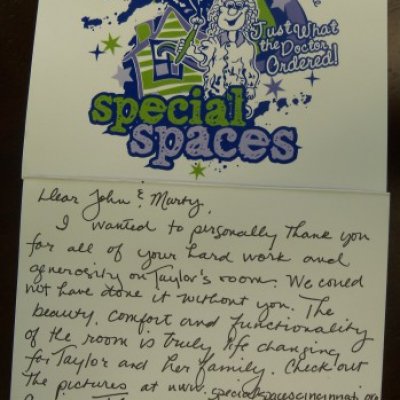 Just What
the Doctor
Ordered!
special
spaces
Dear John & Marty,
I wanted to personally thank you
for all of your hard work and
generosity on Taylor's room. We could
not have done it without you. The
beauty, comfort and functionality
of the room is truly life changing
for Taylor and her family. Check out
the pictures at www.specialspacescincinnati.org